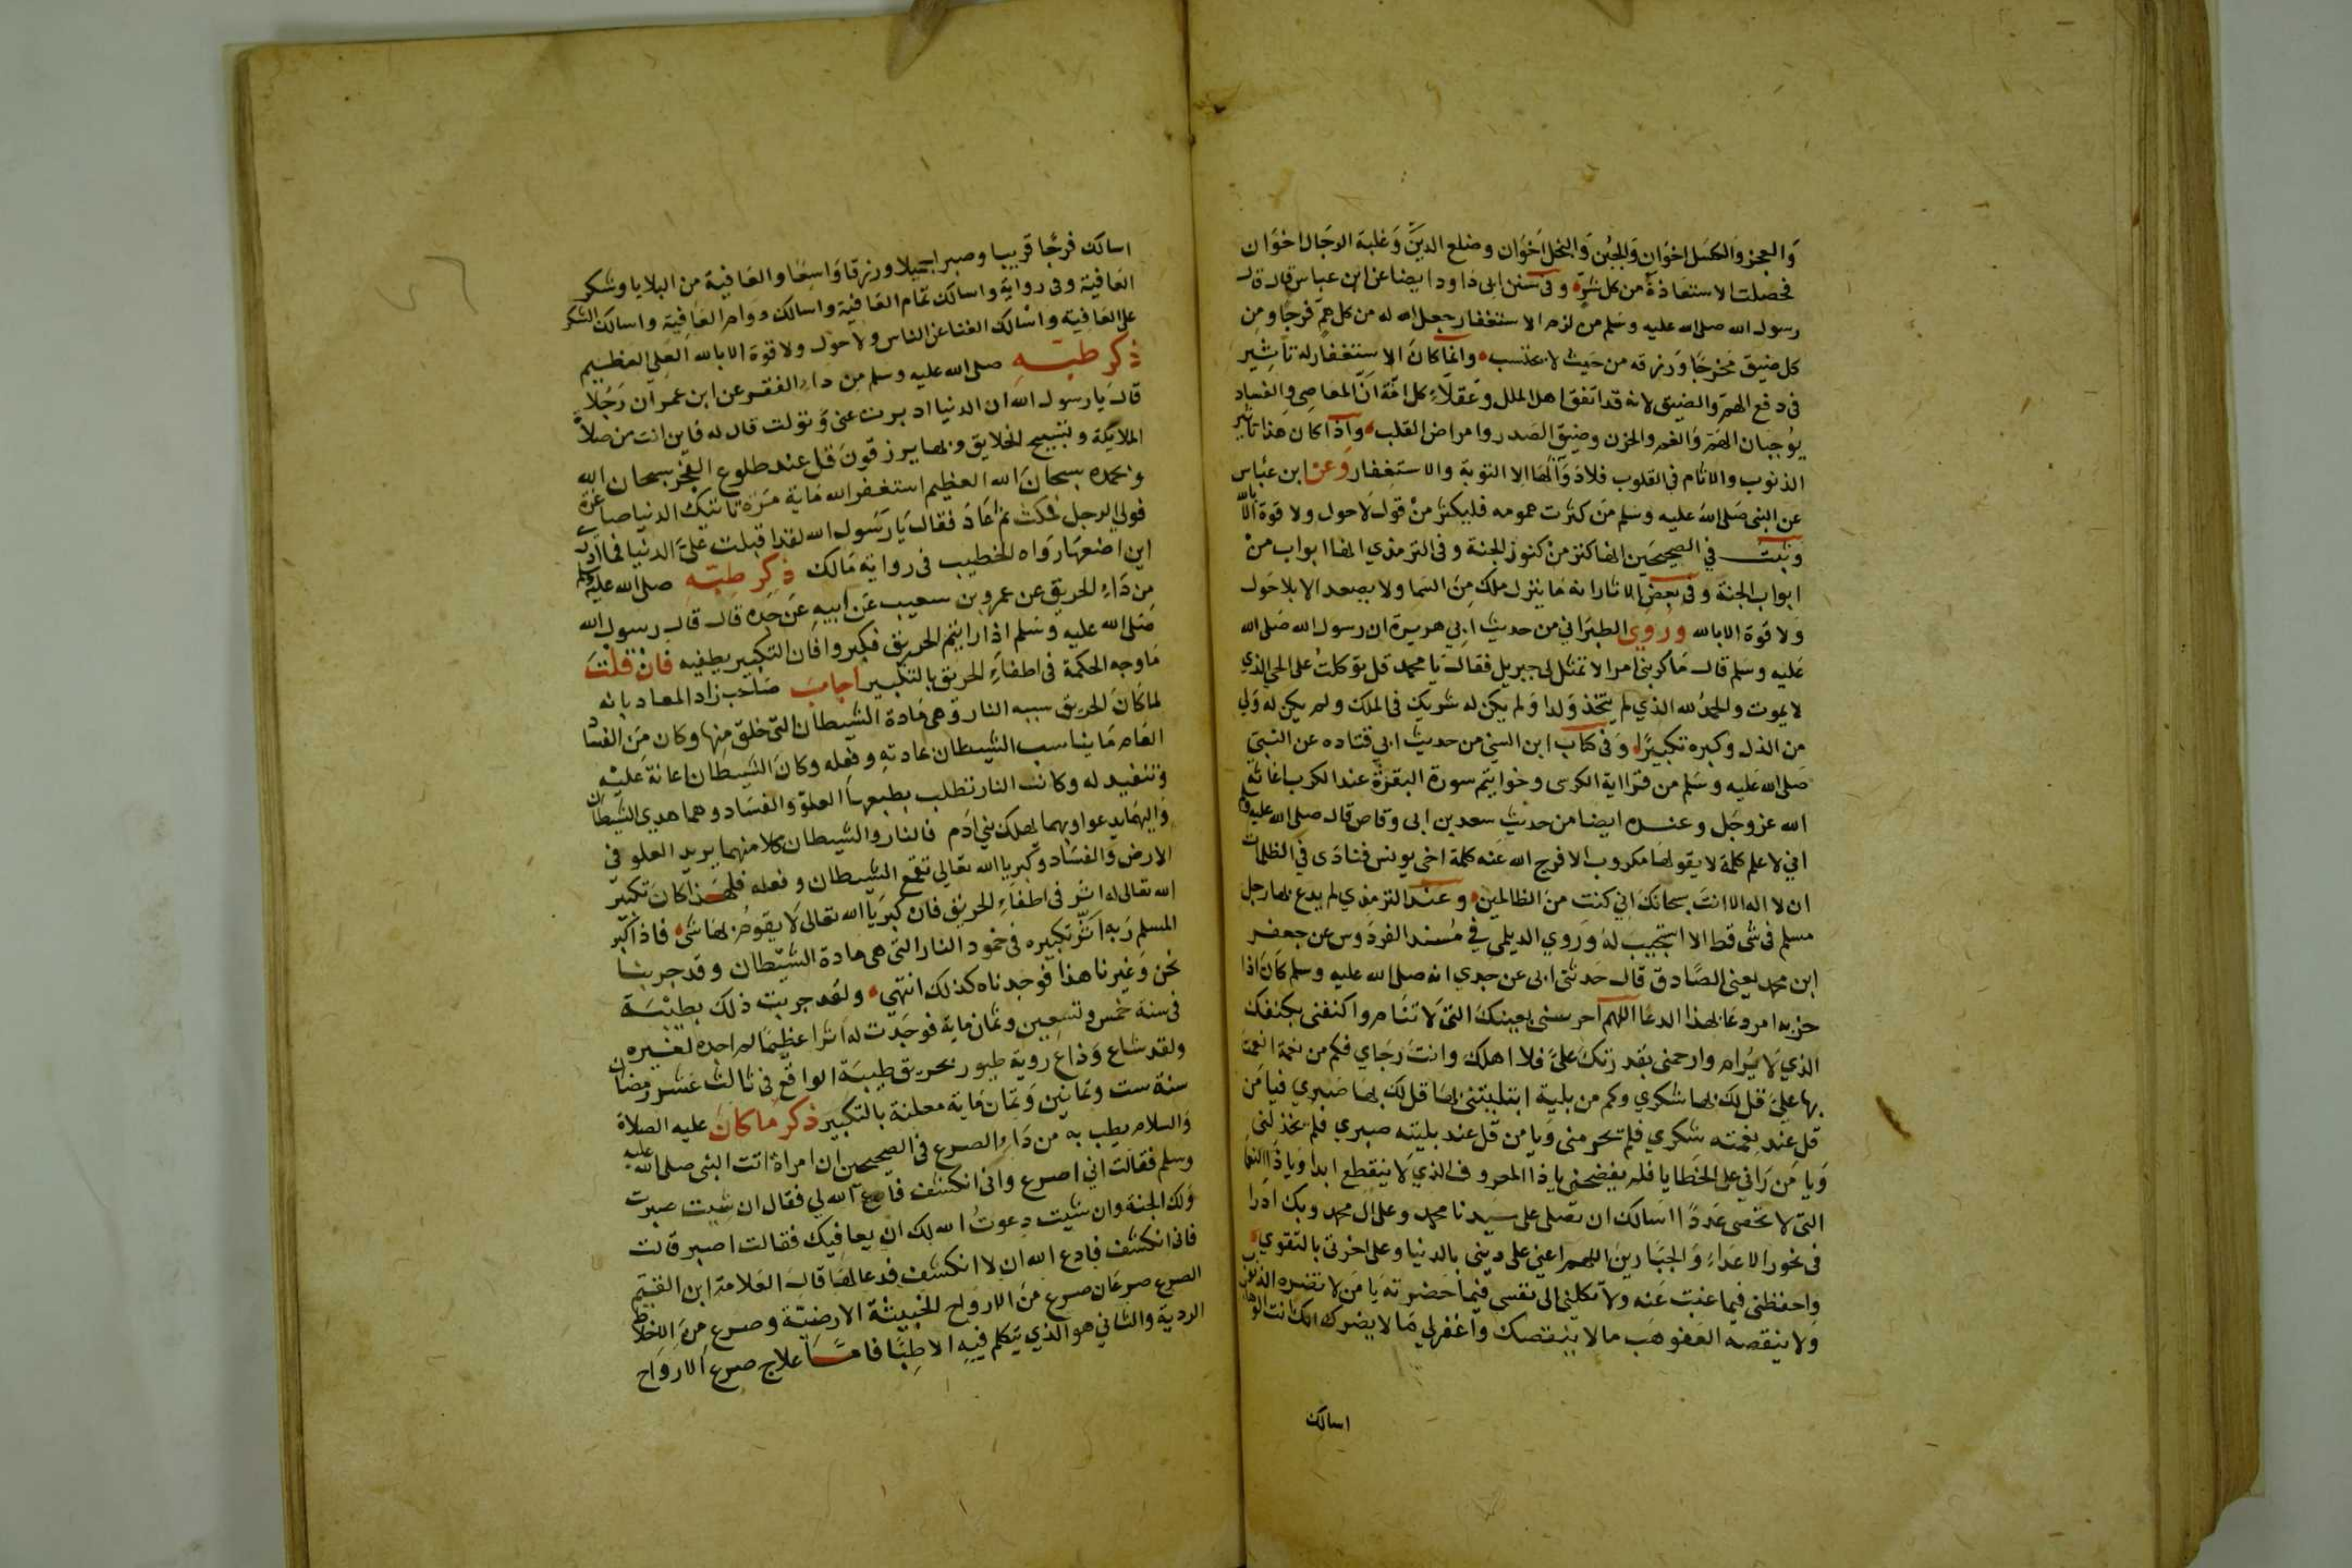 والعجز والكسل اخوان والجبن والبخل اخوان وضلع الدين وغلبة الرجال اخوان
فحصلت الاستعاذة من كل شر وفي سنن ابي داود ايضا عن ابن عباس قال قال
رسول الله صلى الله عليه وسلم من لزم الاستغفار جعل الله له من كل هم فرجا ومن
كل ضيق مخرجا ورزقه من حيث لا يحتسب وانما كان الاستغفار له تاثير
في دفع الهم والضيق لانه قد اتفق اهل الملل وعقلاء كل امة ان المعاصي والفساد
يوجبان الهم والغم والحزن وضيق الصدر وامراض القلب واذا كان هذا تاثير
الذنوب والاثام في القلوب فلا دوا لها الا التوبة والاستغفار وعن ابن عباس
عن النبي صلى الله عليه وسلم من كثرت همومه فليكثر من قول لا حول ولا قوة الا بالله
وثبت في الصحيحين انها كنز من كنوز الجنة وفي الترمذي انها ابواب من
ابواب الجنة وفي بعض الاثار انه ما ينزل ملك من السما ولا يصعد الا بلا حول
ولا قوة الا بالله وروي الطبراني من حديث ابي هريرة ان رسول الله صلى الله
عليه وسلم قال ما كربني امر الا تمثل لي جبريل فقال يا محمد قل توكلت على الحي الذي
لا يموت والحمد لله الذي لم يتخذ ولدا ولم يكن له شريك في الملك ولم يكن له ولي
من الذل وكبره تكبيرا وفي كتاب ابن السني من حديث ابي قتاده عن النبي
صلى الله عليه وسلم من قرا اية الكرسي وخواتيم سورة البقرة عند الكرب اغاثه
الله عز وجل وعنده ايضا من حديث سعد بن ابي وقاص قال صلى الله عليه وسلم
اني لا علم كلمة لا يقولها مكروب الا فرج الله عنه كلمة اخي يونس فنادى في الظلمات
ان لا اله الا انت سبحانك اني كنت من الظالمين وعند الترمذي لم يدع بها رجل
مسلم في شي قط الا استجيب له وروي الديلمي في مسند الفردوس عن جعفر
ابن محمد يعني الصادق قال حدثني ابي عن جدي انه صلى الله عليه وسلم كان اذا
حزبه امر دعا بهذا الدعا اللهم احرسني بعينك التي لا تنام واكنفني بكنفك
الذي لا يرام وارحمني بقدرتك علي فلا اهلك وانت رجاي فكم من نعمة انعمت
بها علي قل لك بها شكري وكم من بلية ابتليتني بها قل لك بها صبري فيا من
قل عند نعمته شكري فلم تحرمني ويا من قل عند بليته صبري فلم يخذلني
ويا من راني على الخطايا فلم يفضحني يا ذا المعروف الذي لا ينقطع ابدا ويا ذا النعما
التي لا تحصى عددا اسالك ان تصلى على سيدنا محمد وعلى ال محمد وبك ادرا
في نحور الاعداء والجبارين اللهم اعني على ديني بالدنيا وعلى اخرتي بالتقوي
واحفظني فيما غبت عنه ولا تكلني الى نفسي فيما حضرته يا من لا تضره الذنوب
ولا ينقصه العفو هب مالا ينقصك واغفر لي مالا يضرك انك انت الوهاب
اسالك
اسالك فرجا قريبا وصبرا جميلا ورزقا واسعا والعافية من البلايا وشكر
العافية وفي رواية واسالك تمام العافية واسالك دوام العافية واسالك الشكر
على العافية واسالك الغنا عن الناس ولا حول ولا قوة الا بالله العلي العظيم
ذكر طبه صلى الله عليه وسلم من داء الفقر عن ابن عمر ان رجلا
قال يا رسول الله ان الدنيا ادبرت عني وتولت قال له فاين انت من صلاة
الملايكة وتسبيح الخلايق وبها يرزقون قل عند طلوع الفجر سبحان الله
وبحمده سبحان الله العظيم استغفر الله ماية مرة تاتيك الدنيا صاغرة
فولي الرجل فمكث ثم عاد فقال يا رسول الله لقد اقبلت علي الدنيا فما ادري
اين اضعها رواه الخطيب في رواية مالك ذكر طبه صلى الله عليه وسلم
من داء الحريق عن عمرو بن سعيب عن ابيه عن جده قال قال رسول الله
صلى الله عليه وسلم اذا رايتم الحريق فكبروا فان التكبير يطفيه فان قلت
ما وجه الحكمة في اطفاء الحريق بالتكبير اجاب صاحب زاد المعاد بانه
لما كان الحريق سببه النار وهي مادة الشيطان التي خلق منها وكان من الفساد
العام ما يناسب الشيطان عادته وفعله وكان الشيطان اعانة عليه
وتنفيد له وكانت النار تطلب بطبعها العلو والفساد وهما هدي الشيطان
واليهما يدعوا وبهما يهلك بني ادم فالنار والشيطان كلا منهما يريد العلو في
الارض والفساد وكبريا الله تعالى تقمع الشيطان وفعله فلهذا كان تكبير
الله تعالى له اثر في اطفاء الحريق فان كبريا الله تعالى لا يقوم لها شي فاذا كبر
المسلم ربه اثر تكبيره في خمود النار التي هي مادة الشيطان وقد جربنا
نحن وغيرنا هذا فوجدناه كذلك انتهي ولقد جربت ذلك بطيبة
في سنة خمس وتسعين وثمان ماية فوجدت له اثرا عظيما لم اجده لغيره
ولقد شاع وذاع روية طيور بحريق طيبة الواقع في ثالث عشر رمضان
سنة ست وثمانين وثمان ماية معلنة بالتكبير ذكر ما كان عليه الصلاة
والسلام يطب به من داء الصرع في الصحيحين ان امراة اتت النبي صلى الله عليه
وسلم فقالت اني اصرع واني انكشف فادع الله لي فقال ان شيت صبرت
ولك الجنة وان شيت دعوت الله لك ان يعافيك فقالت اصبر قالت
فاني انكشف فادع الله ان لا انكشف فدعا لها قال العلامة ابن القيم
الصرع صرعان صرع من الارواح الخبيثة الارضية وصرع من الاخلاط
الردية والثاني هو الذي يتكلم فيه الاطبا فاما علاج صرع الارواح